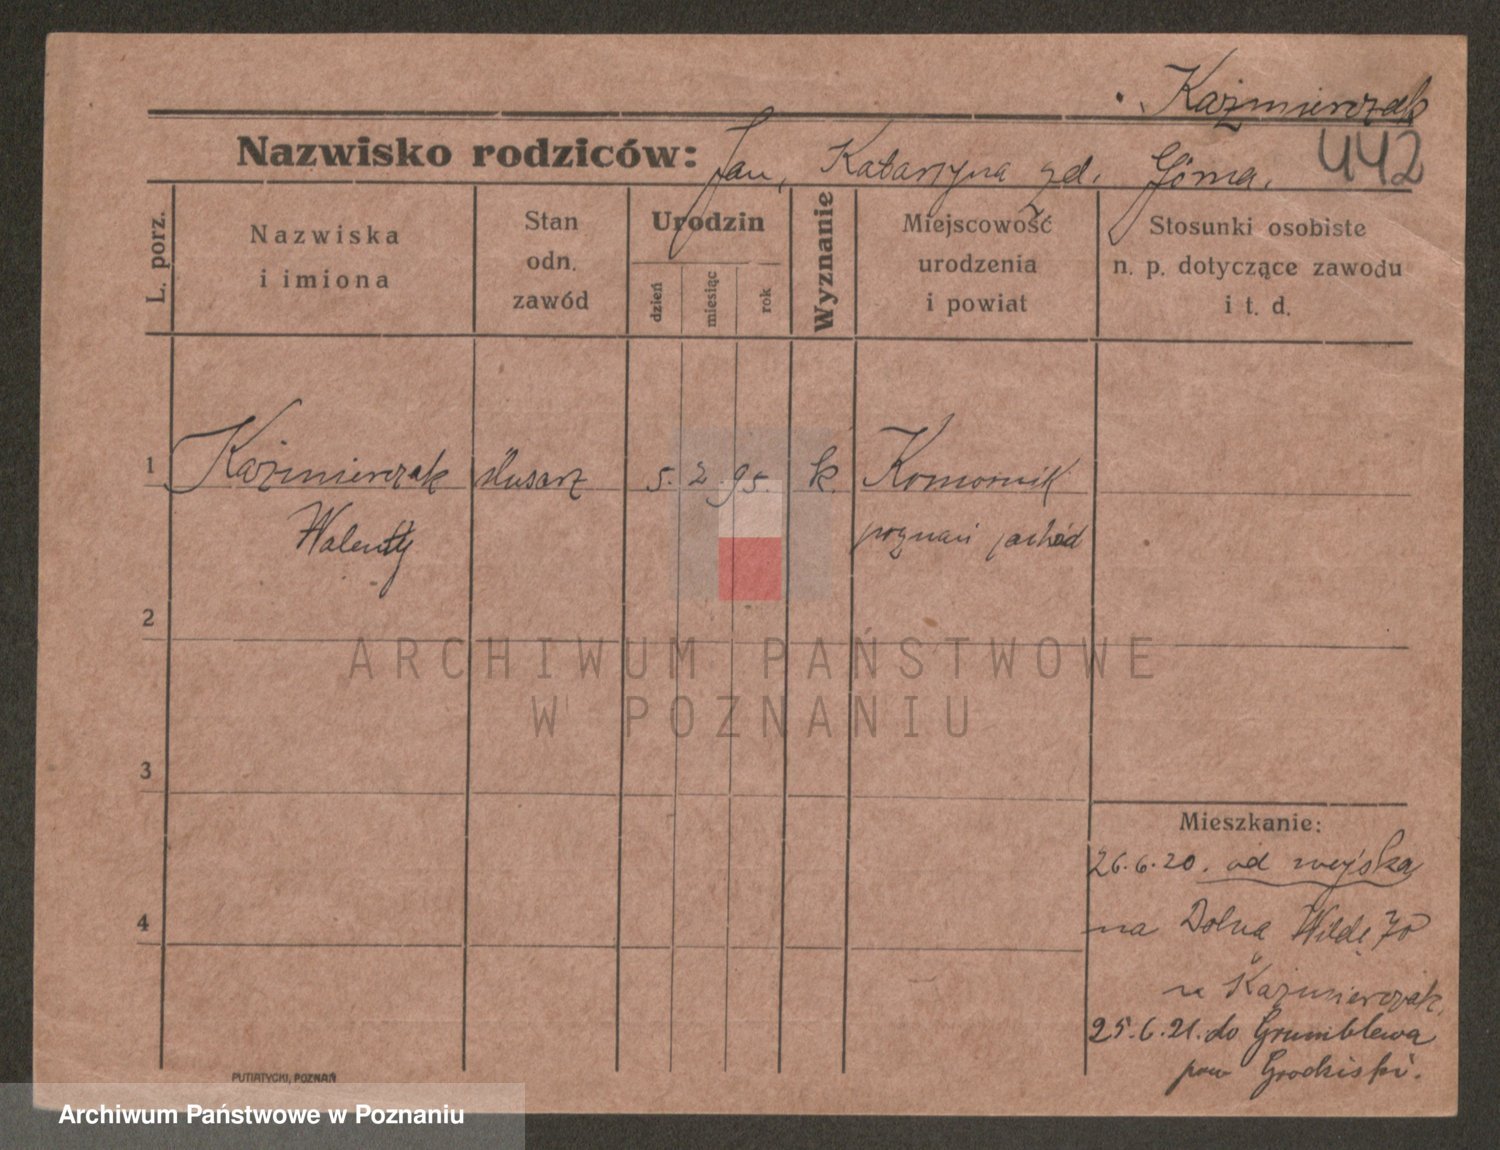 Kaźmierczak
Nazwisko rodziców: Jan, Katarzyna zd. Górna.
442
L. porz.
Nazwiska
i imiona
Stan
odn.
zawód
Urodzin
dzień
miesiąc
rok
Wyznanie
Miejscowość
urodzenia
i powiat
Stosunki osobiste
n. p. dotyczące zawodu
i t. d.
1 Kaźmierczak ślusarz 5. 2. 95. k. Komornik
Walenty poznań zachód
2
ARCHIWUM PAŃSTWOWE
W POZNANIU
3
Mieszkanie:
26.6.20. od wojska
4
na Dolna Wildę 70
u Kaźmierczak
25.6.21. do Grumblewa
pow Grodziski.
PUTIATYCKI, POZNAŃ
Archiwum Państwowe w Poznaniu